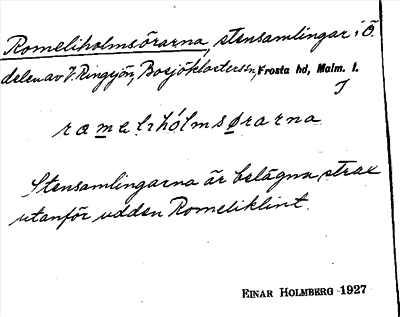 Romeliholmsörarna, stensamlingar i Ö.
delen av V. Ringsjön, Bosjöklosters sn, Frosta hd, Malm. l.
J
ramelhólmsørarna
Stensamlingarna är belägna strax
utanför udden Romeliklint.
EINAR HOLMBERG 1927